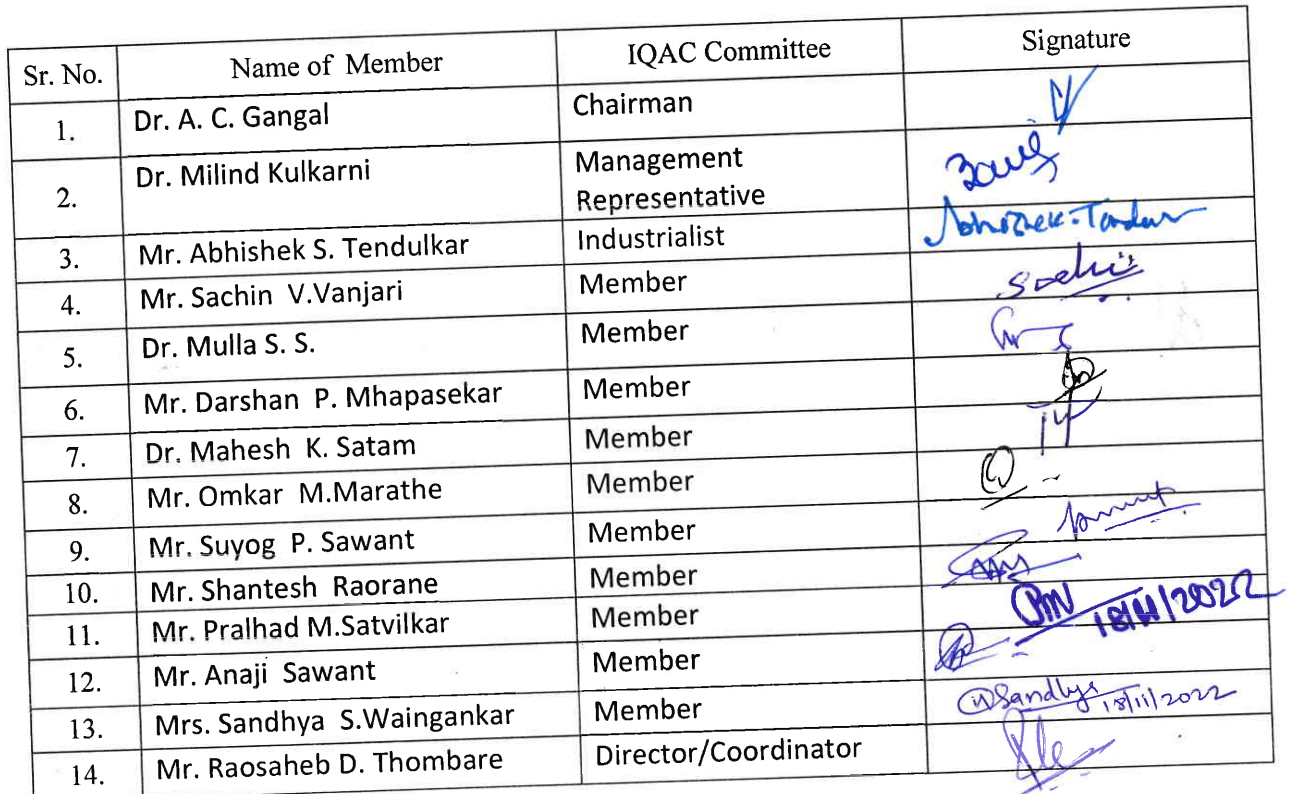 Sr. No. Name of Member IQAC Committee Signature
1. Dr. A. C. Gangal Chairman
2. Dr. Milind Kulkarni Management
Representative
3. Mr. Abhishek S. Tendulkar Industrialist
4. Mr. Sachin V.Vanjari Member
5. Dr. Mulla S. S. Member
6. Mr. Darshan P. Mhapasekar Member
7. Dr. Mahesh K. Satam Member
8. Mr. Omkar M.Marathe Member
9. Mr. Suyog P. Sawant Member
10. Mr. Shantesh Raorane Member
11. Mr. Pralhad M.Satvilkar Member 18/11/2022
12. Mr. Anaji Sawant Member
13. Mrs. Sandhya S.Waingankar Member Sandhya 18/11/2022
14. Mr. Raosaheb D. Thombare Director/Coordinator